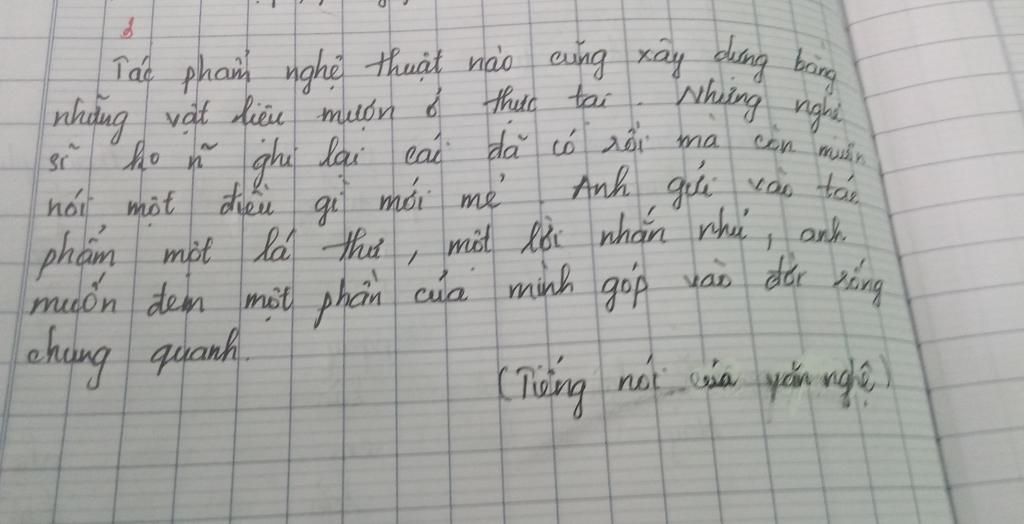 Tác phẩm nghệ thuật nào cũng xây dựng bằng
những vật liệu mượn ở thực tại. Nhưng nghệ
sĩ ko n~ ghi lại cái đã có rồi mà còn muốn
nói một điều gì mới mẻ. Anh gửi vào tác
phẩm một lá thư, một lời nhắn nhủ, anh
muốn đem một phần của mình góp vào đời sống
chung quanh.
(Tiếng nói của văn nghệ)